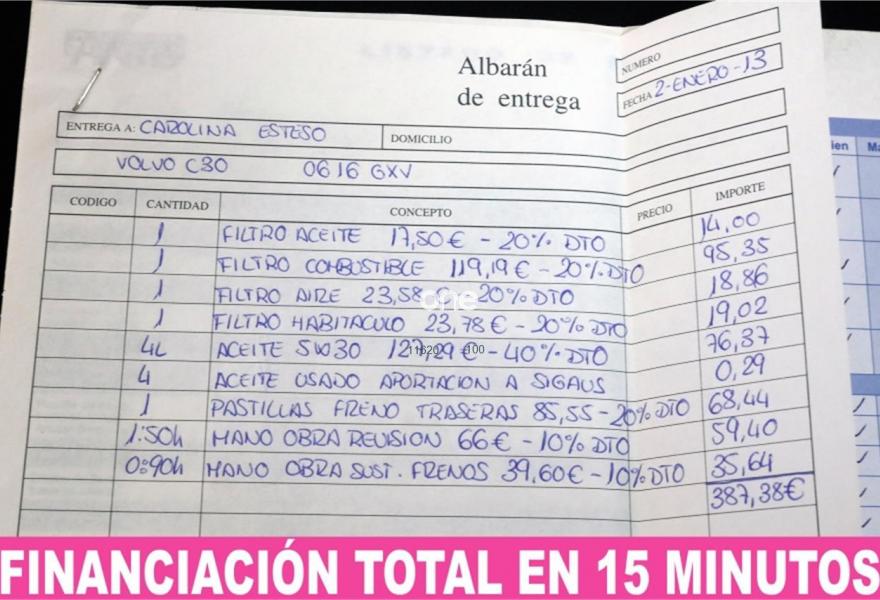 Albarán
de entrega
NUMERO
FECHA 2-ENERO-13
ENTREGA A: CAROLINA ESTESO DOMICILIO
VOLVO C30 0616 GXV
CODIGO CANTIDAD CONCEPTO PRECIO IMPORTE
1 FILTRO ACEITE 17,50€ - 20% DTO 14,00
1 FILTRO COMBUSTIBLE 119,19€ - 20% DTO 95,35
1 FILTRO AIRE 23,58€ - 20% DTO 18,86
1 FILTRO HABITACULO 23,78€ - 20% DTO 19,02
4L ACEITE 5W30 127,29€ - 40% DTO 76,37
4 ACEITE USADO APORTACION A SIGAUS 0,29
1 PASTILLAS FRENO TRASERAS 85,55 - 20% DTO 68,44
1:50h MANO OBRA REVISION 66€ - 10% DTO 59,40
0:90h MANO OBRA SUST. FRENOS 39,60€ - 10% DTO 35,64
387,38€
one
FINANCIACIÓN TOTAL EN 15 MINUTOS